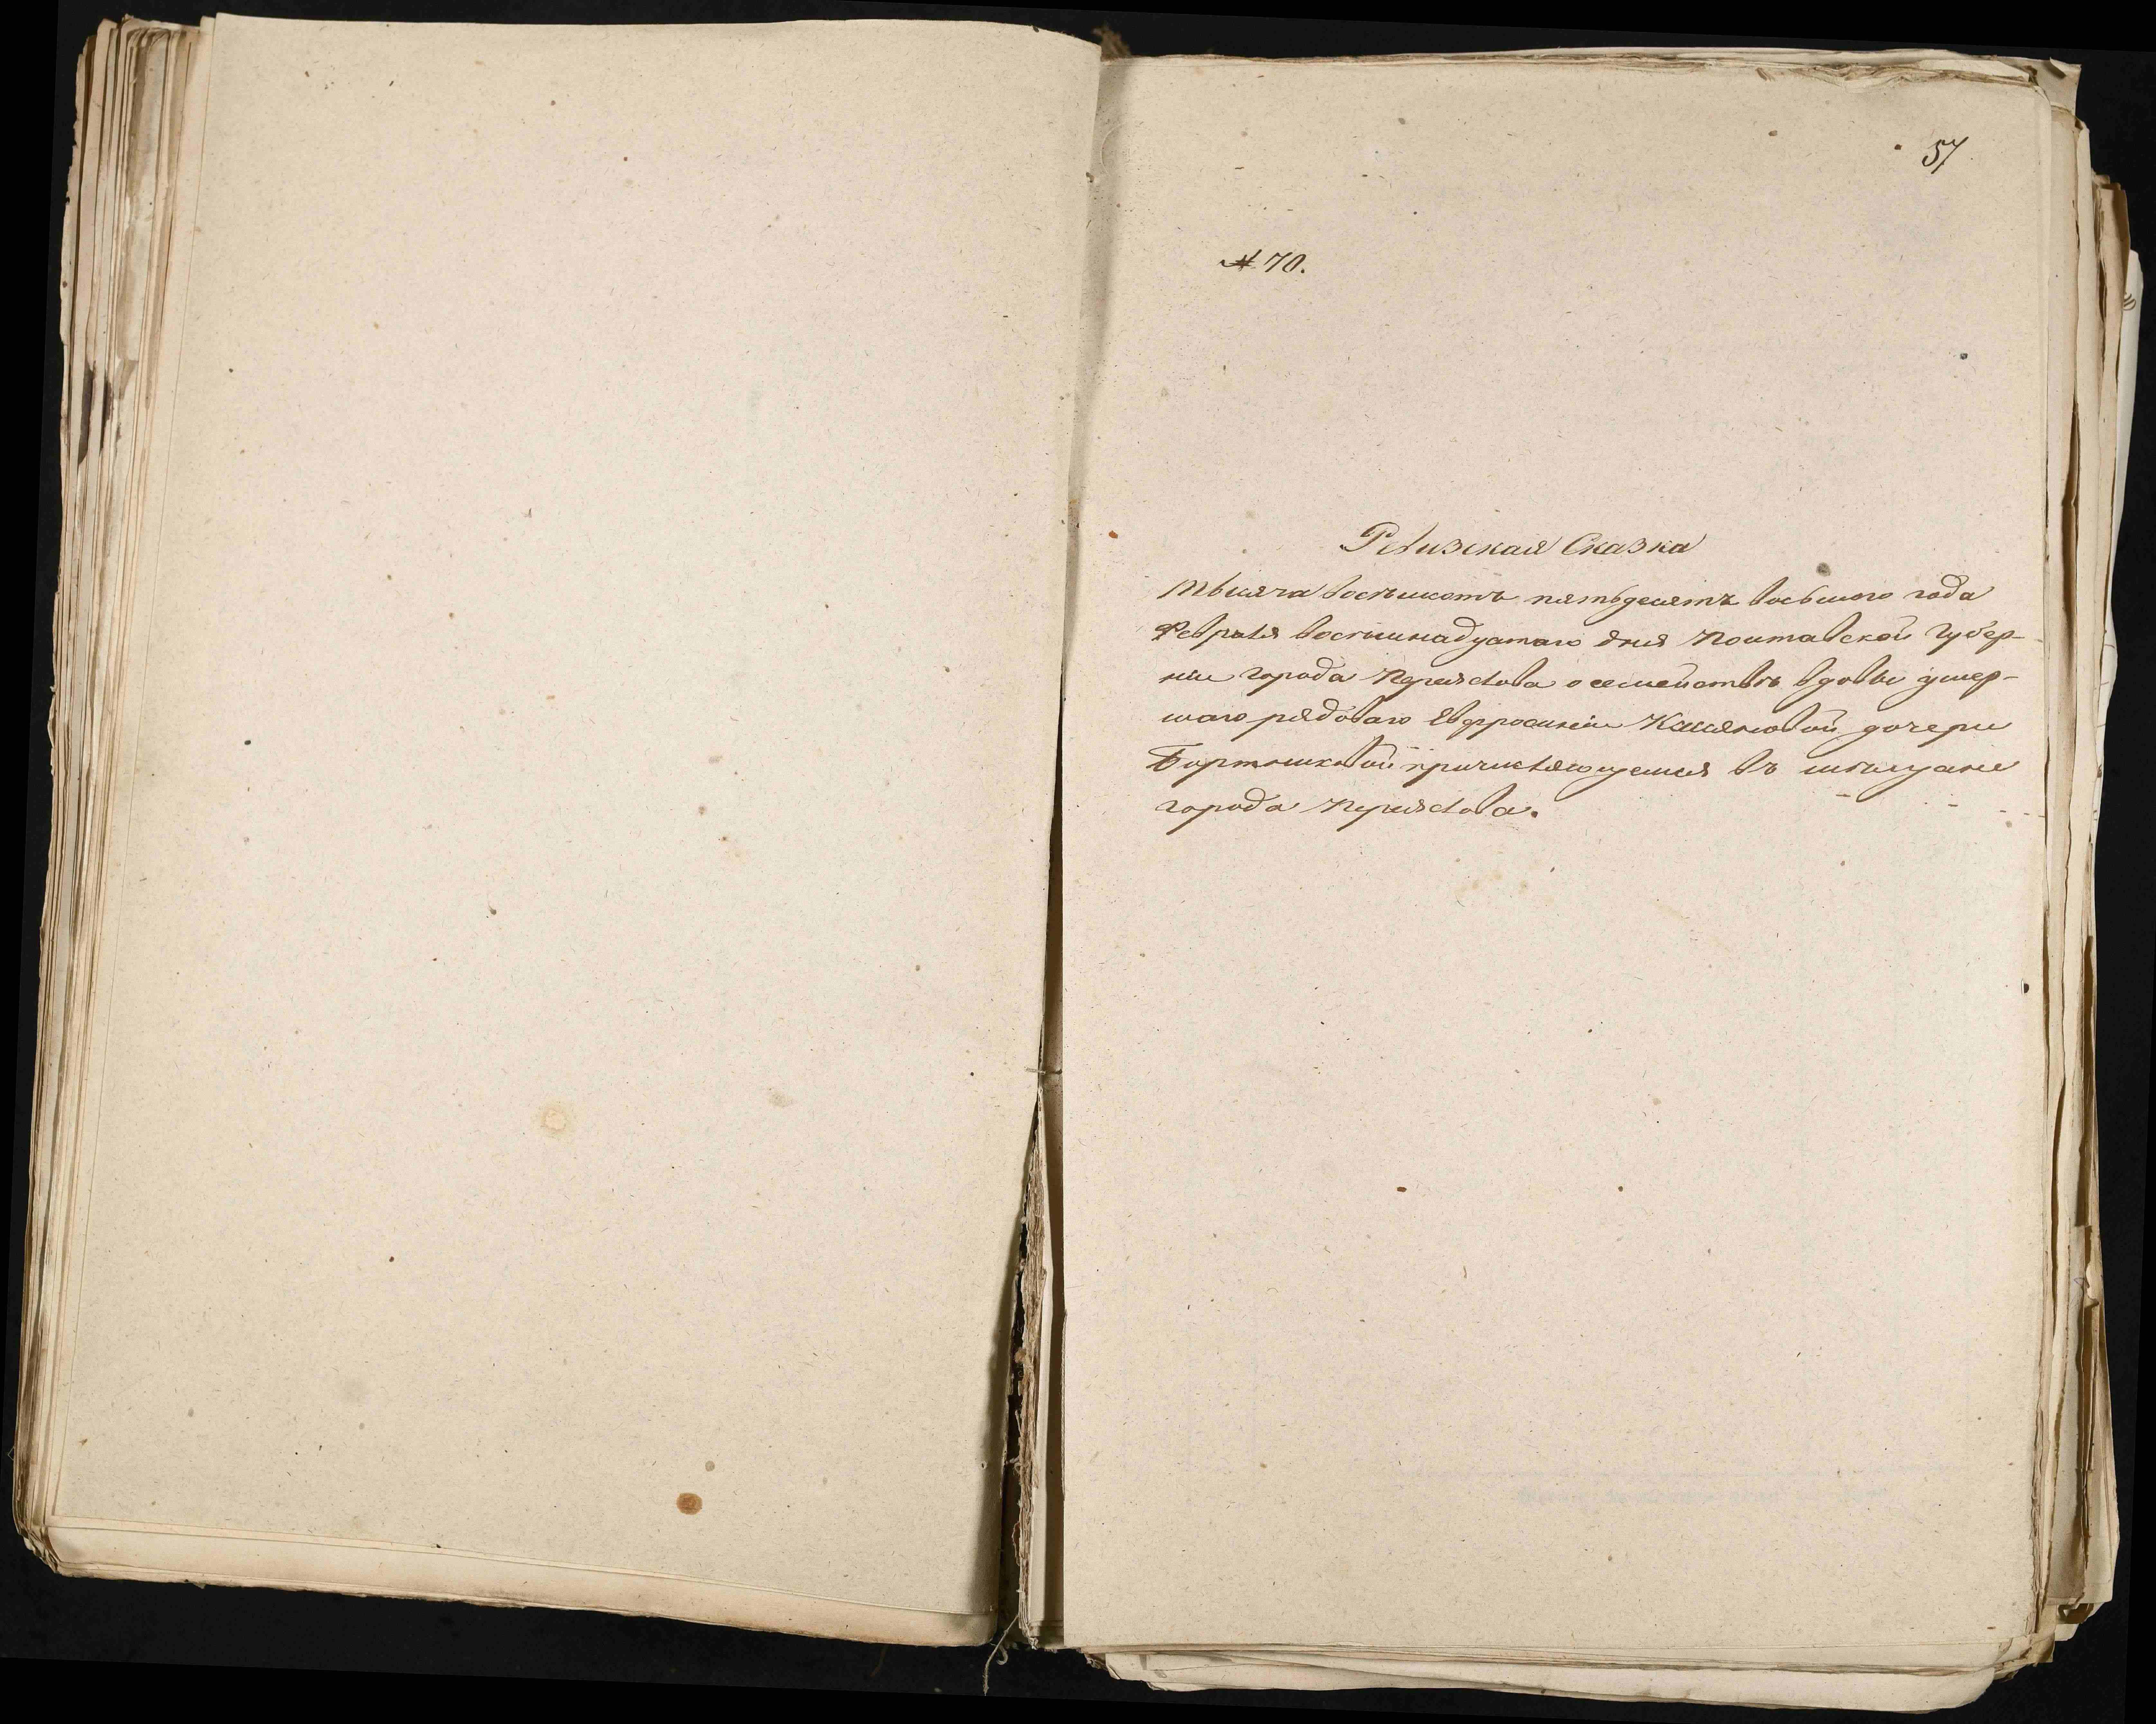 57
№ 70.
Ревизская Сказка
тысяча восемьсотъ пятьдесятъ восьмого года
Февраля восемнадцатаго дня Полтавской Губер-
ніи города Переяслова о семействѣ вдовы умер-
шаго рядоваго Евфросиніи Касьяновой дочери
причисляющемся въ мѣщане
города Переяслова.